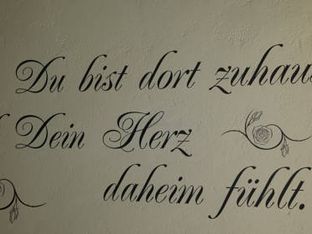 Du bist dort zuhaus
Dein Herz
daheim fühlt.